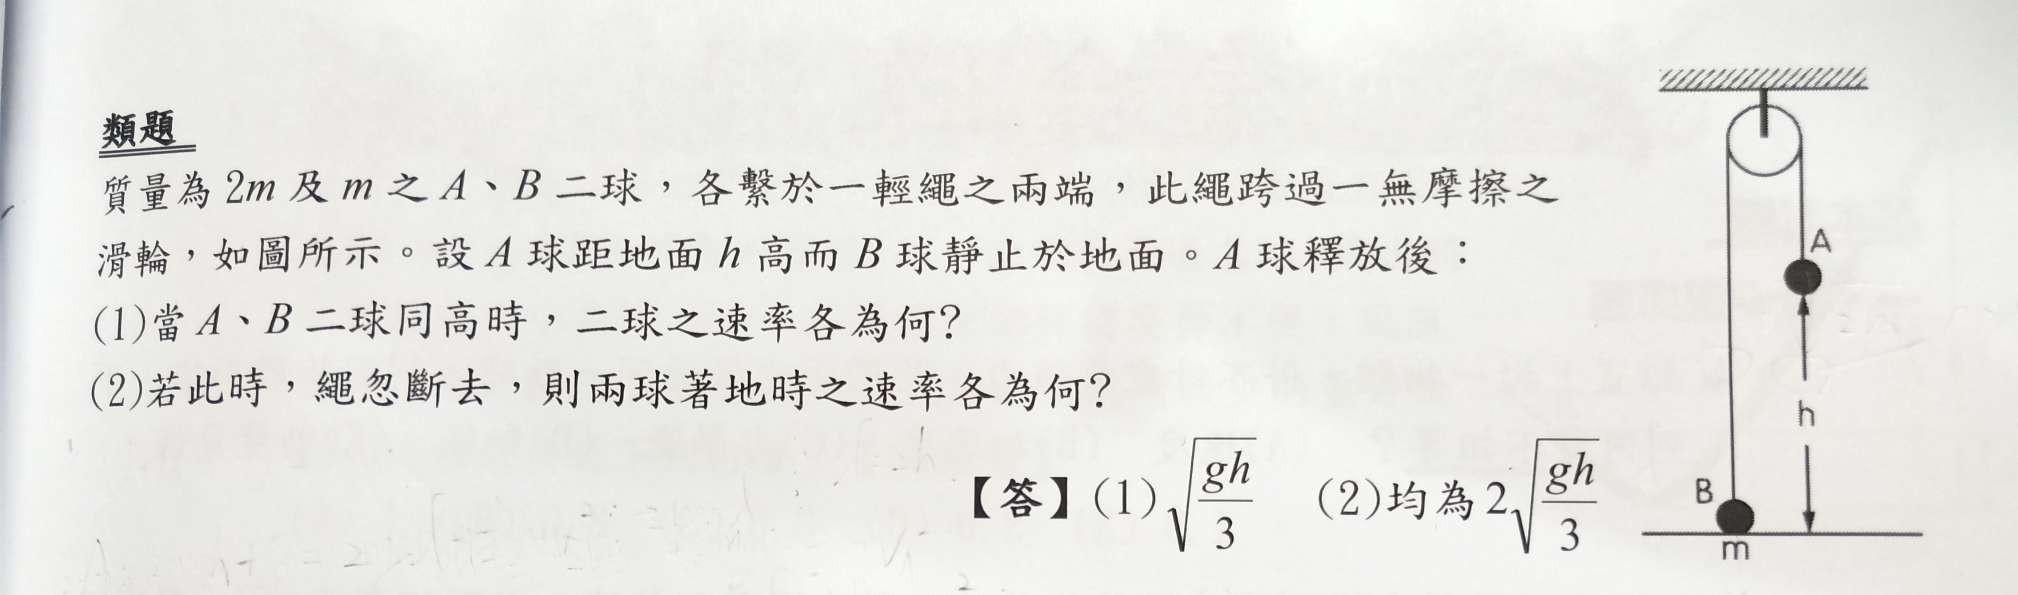 類題
質量為 2m 及 m 之 A、B 二球，各繫於一輕繩之兩端，此繩跨過一無摩擦之
滑輪，如圖所示。設 A 球距地面 h 高而 B 球靜止於地面。A 球釋放後：
(1)當 A、B 二球同高時，二球之速率各為何?
(2)若此時，繩忽斷去，則兩球著地時之速率各為何?
【答】(1)√(gh/3) (2)均為 2√(gh/3)
A
h
B
m